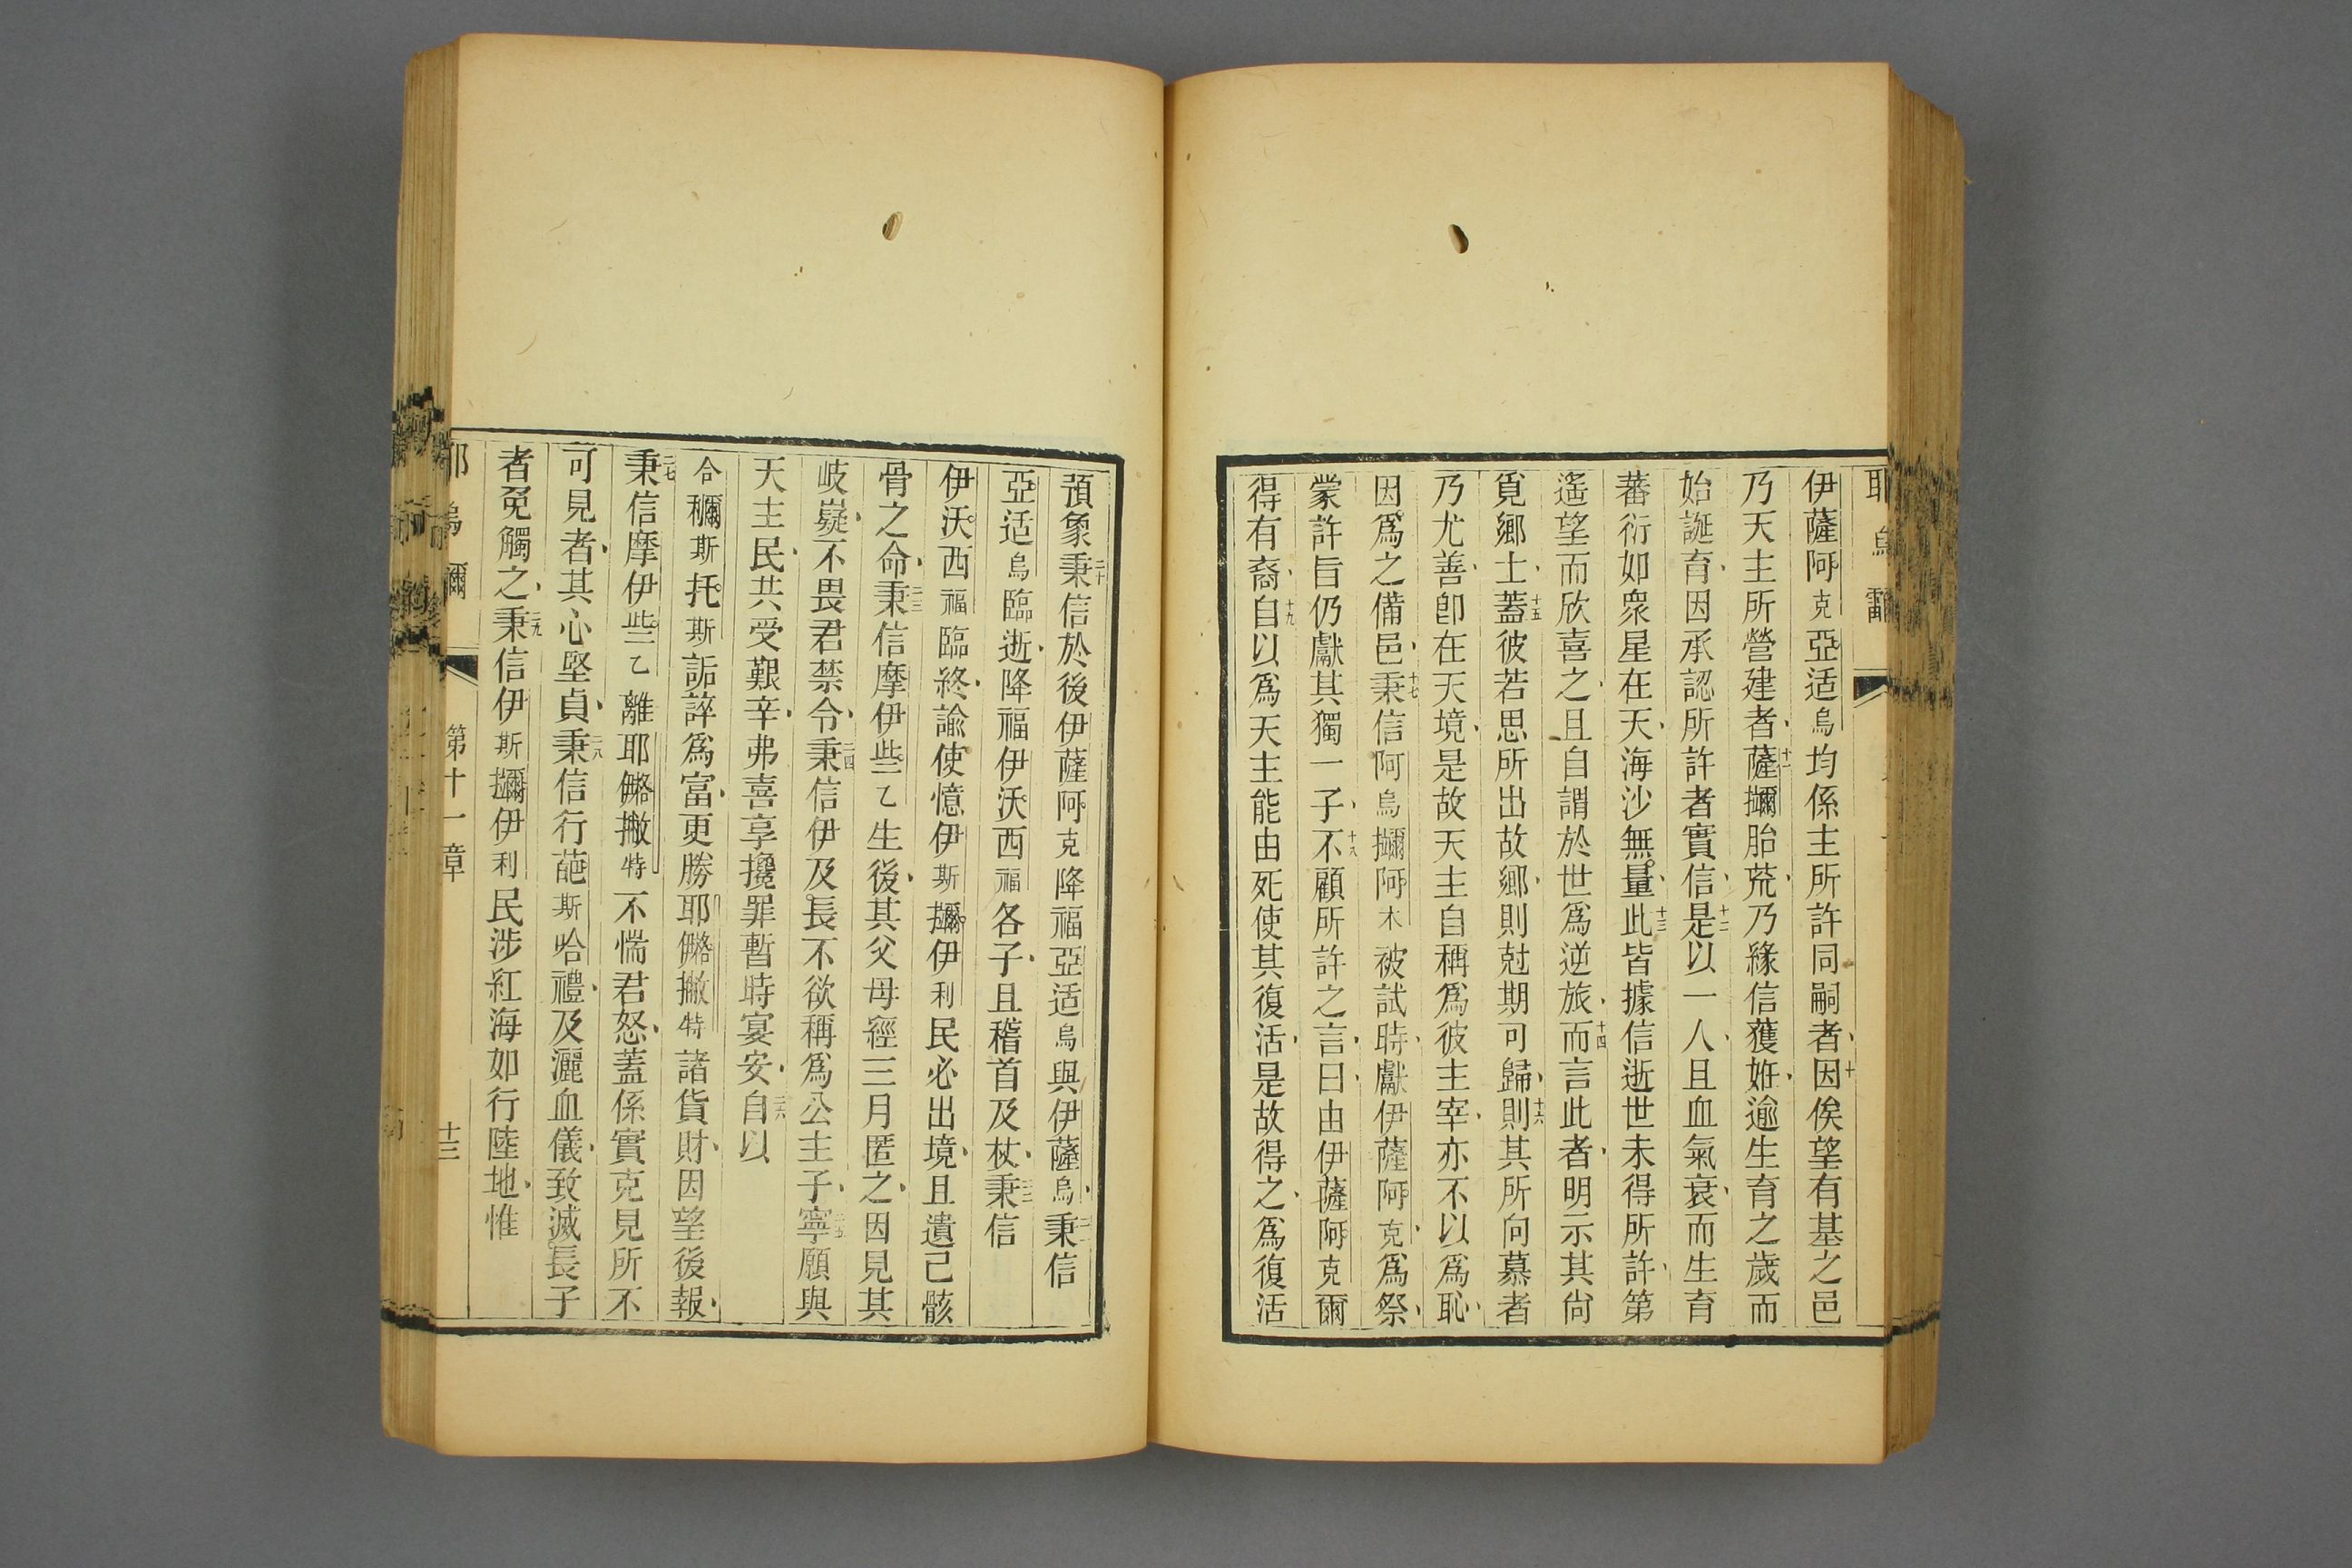 耶烏
伊薩阿克亞适烏均係主所許同嗣者十因俟望有基之邑
乃天主所營建者十一薩攡胎荒乃緣信獲姙逾生育之歲而
始誕育因承認所許者實信十二是以一人且血氣衰而生育
蕃衍如衆星在天海沙無量十三此皆據信逝世未得所許第
遙望而欣喜之且自謂於世爲逆旅十四而言此者明示其尙
覓鄉土十五蓋彼若思所出故鄉則尅期可歸十六則其所向慕者
乃尤善卽在天境是故天主自稱爲彼主宰亦不以爲恥
因爲之備邑十七秉信阿烏攡阿木被試時獻伊薩阿克爲祭
蒙許旨仍獻其獨一子十八不顧所許之言曰由伊薩阿克爾
得有裔十九自以爲天主能由死使其復活是故得之爲復活
預象二十秉信於後伊薩阿克降福亞适烏與伊薩烏二一秉信
亞适烏臨逝降福伊沃西福各子且稽首及杖二二秉信
伊沃西福臨終諭使憶伊斯攡伊利民必出境且遺己骸
骨之命二三秉信摩伊些乙生後其父母窰三月匿之因見其
岐嶷不畏君禁令二四秉信伊及長不欲稱爲公主子二五寧願與
天主民共受艱辛弗喜享攙罪暫時宴安二六自以
合穪斯托斯詬誶爲富更勝耶撇特諸貨財因望後報
二七秉信摩伊些乙離耶撇特不惴君怒蓋係實克見所不
可見者其心堅貞二八秉信行葩斯哈禮及灑血儀致滅長子
者免觸之二九秉信伊斯攡伊利民涉紅海如行陸地惟
耶烏 第十一章 十三